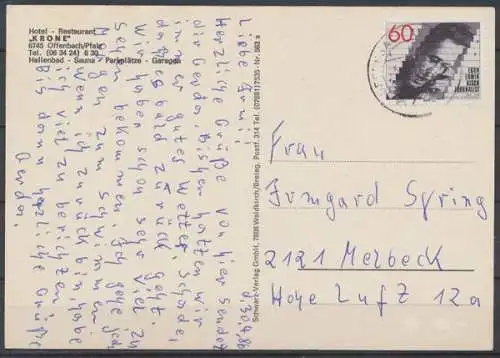 Hotel - Restaurant
"KRONE"
6745 Offenbach/Pfalz
Tel. (0 63 48) 6 30
Hallenbad - Sauna - Parkplätze - Garagen
d. 30.4.86
Liebe Irmi!
Herzliche Grüße von hier sendet
dir Gerda. Bisher hatten wir
immer gutes Wetter. Schade,
daß es bald zurück geht.
Wir haben schon sehr viel zu
sehen bekommen. Ich gehe jed.
Morgen zum schwimmen.
Wenn ich zurück bin habe
ich viel zu berichten.
Bis dann herzliche Grüße
Gerda.
Schwarz-Verlag GmbH, 7808 Waldkirch/Breisg. Postf. 314 Tel. (07681)7535 · Nr. 563 a
60
EGON
ERWIN
KISCH
JOURNALIST
Frau
Irmgard Spring
2121 Melbeck
Hohe Luft 12a